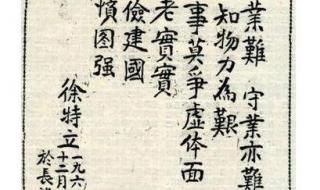 業難 守業亦難
知物力為艱
事莫爭虛体面
老實實
儉建國
愤图强
徐特立
一九六
十二月
於長